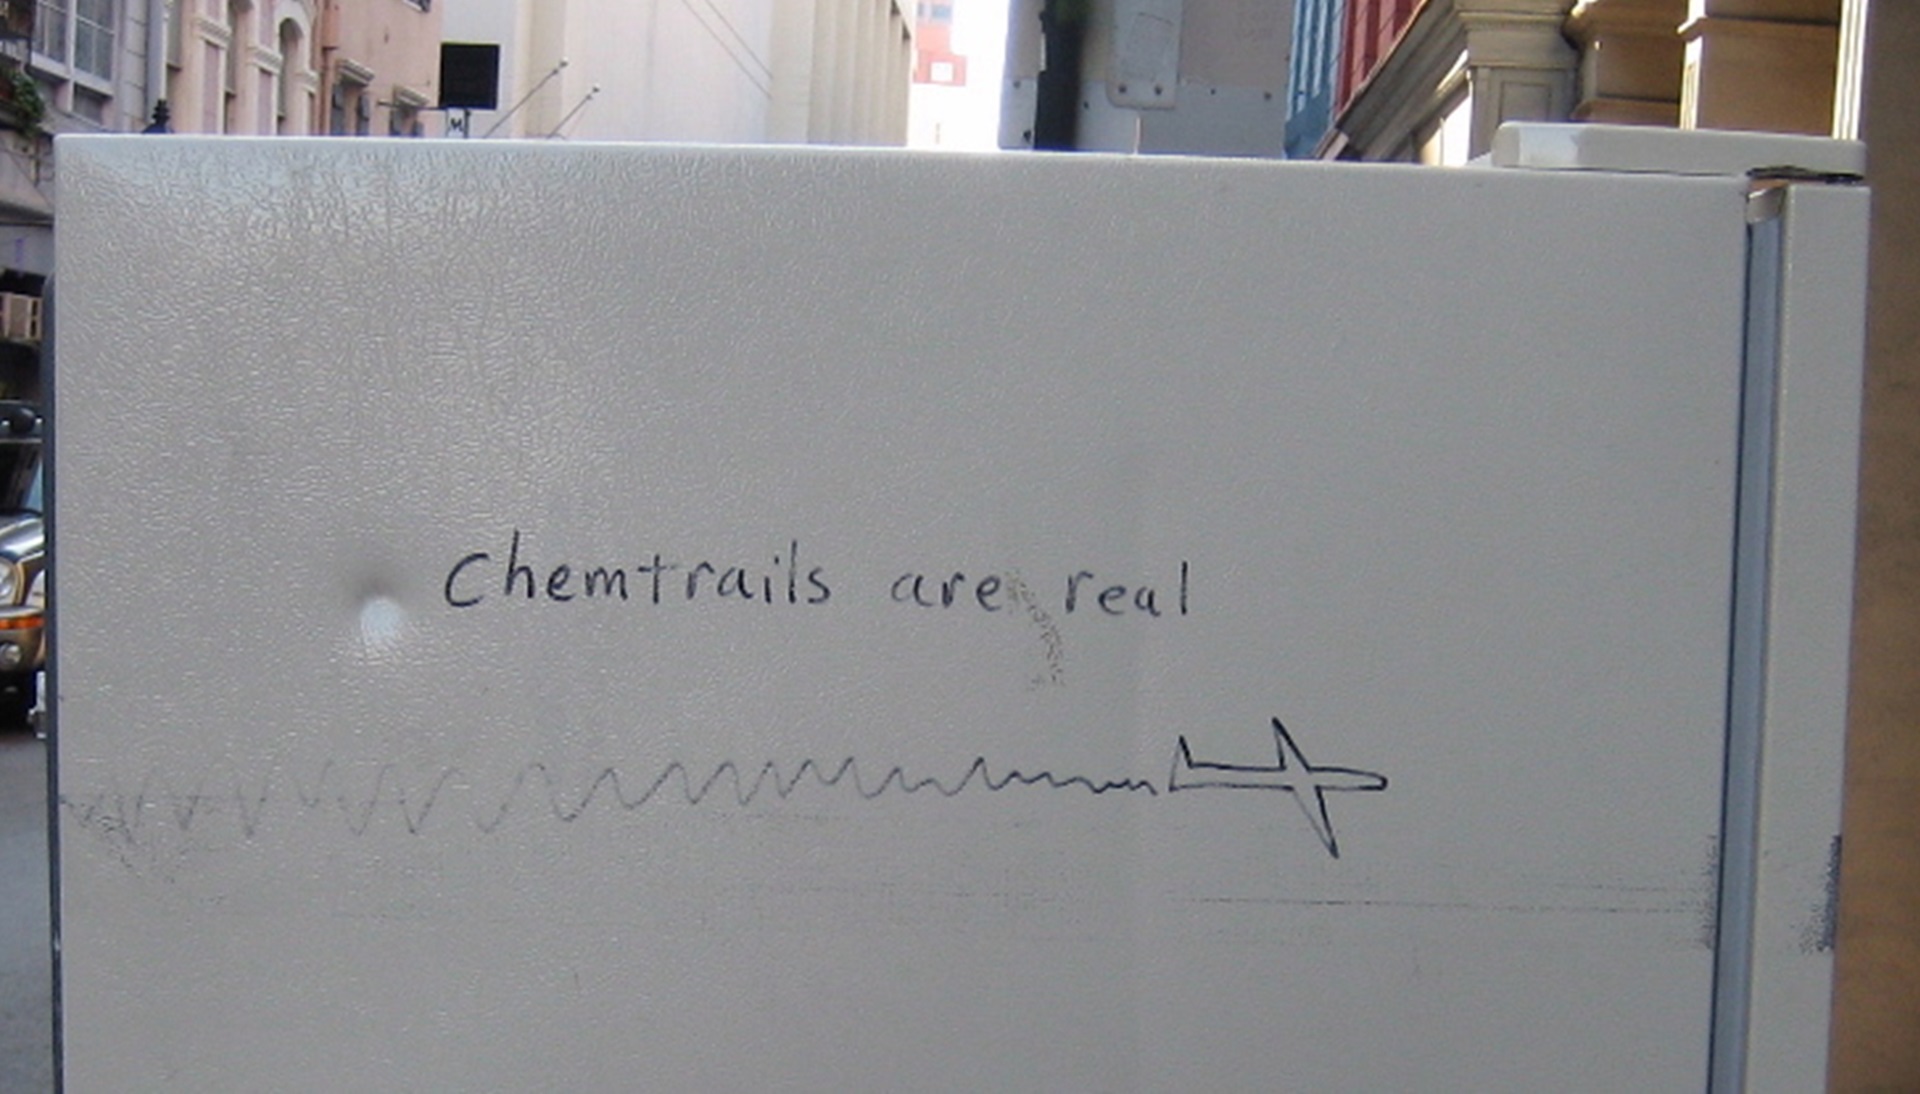 Chemtrails are real
M